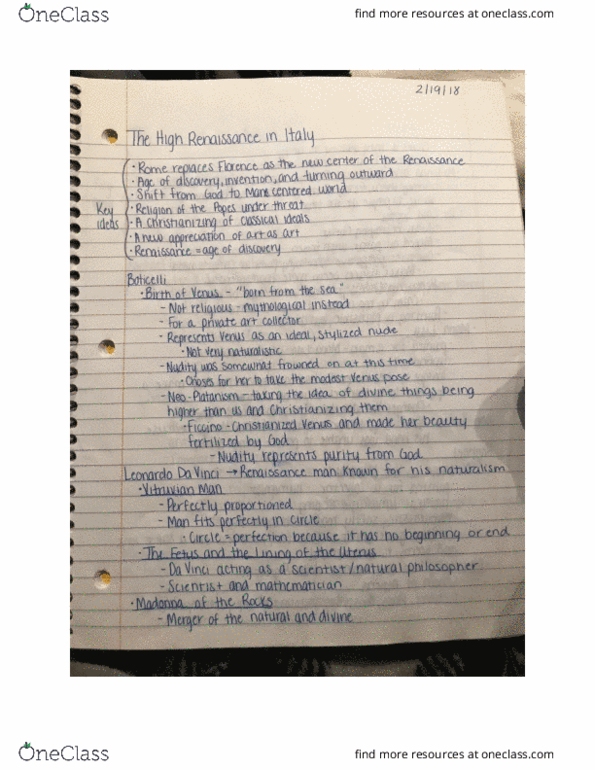 OneClass
find more resources at oneclass.com
2/19/18
The High Renaissance in Italy
Key ideas
· Rome replaces Florence as the new center of the Renaissance
· Age of discovery, invention, and turning outward
· Shift from God to Man centered world
· Religion of the Popes under threat
· A Christianizing of classical ideals
· A new appreciation of art as art
· Renaissance = age of discovery
Boticelli
· Birth of Venus - "born from the sea"
- Not religious - mythological instead
- For a private art collector
- Represents Venus as an ideal, stylized nude
· Not very naturalistic
- Nudity was somewhat frowned on at this time
· Choses for her to take the modest Venus pose
- Neo-Platanism - taking the idea of divine things being
higher than us and Christianizing them
· Ficcino - Christianized Venus and made her beauty
fertilized by God
- Nudity represents purity from God
Leonardo Da Vinci → Renaissance man known for his naturalism
· Vitruvian Man
- Perfectly proportioned
- Man fits perfectly in circle
· Circle = perfection because it has no beginning or end
· The Fetus and the lining of the Uterus
- Da Vinci acting as a scientist/natural philosopher
- Scientist and mathematician
· Madonna of the Rocks
- Merger of the natural and divine
OneClass
find more resources at oneclass.com